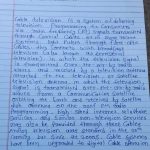 Cable television is a system of delivering
television programming to consumers
via radio frequency (RF) signals transmitted
through coaxial cables, or in more recent
systems, light pulses through fibre-optic
cables. This contrasts with broadcast
television (also known as terrestrial
television), in which the television signal
is transmitted over-the-air by radio
waves and received by a television antenna
attached to the television, or satellite
television, in which the television
signal is transmitted over-the-air by radio
waves from a communications satellite
orbiting the Earth and received by a satellite
dish antenna on the roof. FM radio
programming, high speed internet, telephone
services, and similar non-television services
may also be provided through these cables.
Analog television was standard in the 20th
century, but since the 2000s, cable systems
have been upgraded to digital cable operation